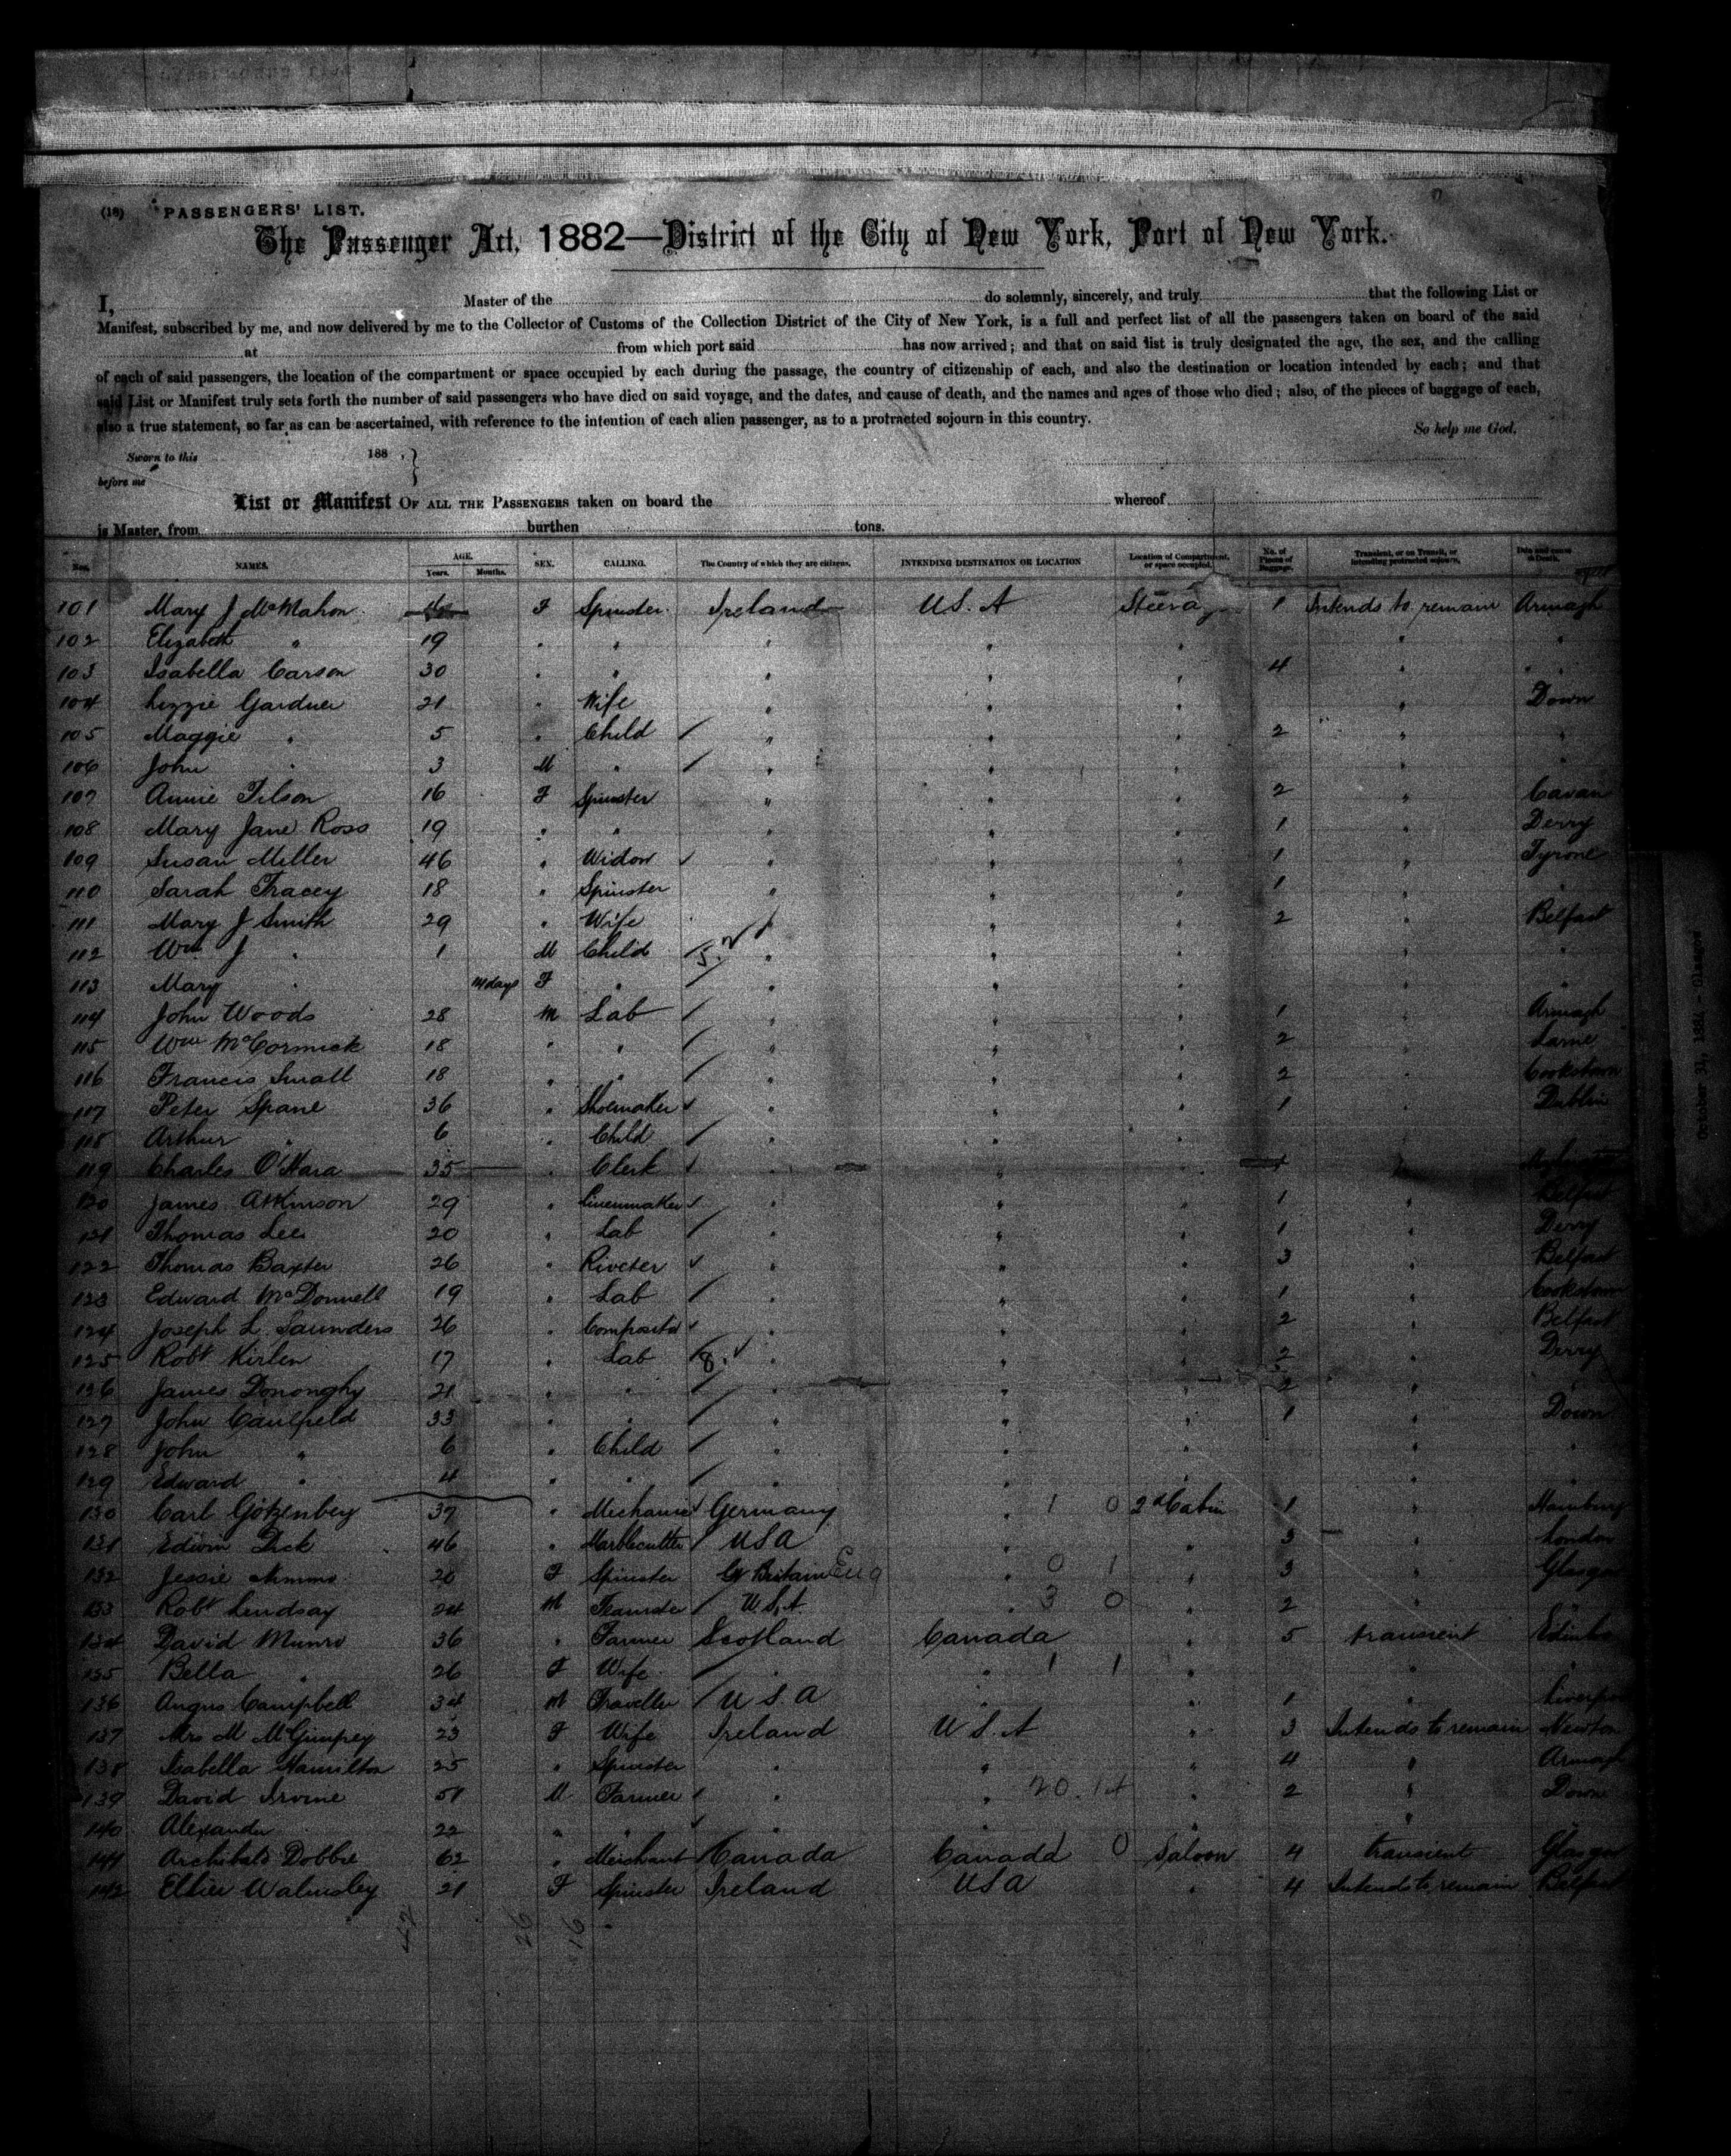 (18) PASSENGERS' LIST.
The Passenger Act, 1882—District of the City of New York, Port of New York.
I, Master of the do solemnly, sincerely, and truly that the following List or
Manifest, subscribed by me, and now delivered by me to the Collector of Customs of the Collection District of the City of New York, is a full and perfect list of all the passengers taken on board of the said
at from which port said has now arrived; and that on said list is truly designated the age, the sex, and the calling
of each of said passengers, the location of the compartment or space occupied by each during the passage, the country of citizenship of each, and also the destination or location intended by each; and that
said List or Manifest truly sets forth the number of said passengers who have died on said voyage, and the dates, and cause of death, and the names and ages of those who died; also, of the pieces of baggage of each,
also a true statement, so far as can be ascertained, with reference to the intention of each alien passenger, as to a protracted sojourn in this country.
So help me God.
Sworn to this 188 ,
before me
List or Manifest OF ALL THE PASSENGERS taken on board the whereof
is Master, from burthen tons.
Nos. NAMES. AGE. Years. Months. SEX. CALLING. The Country of which they are citizens. INTENDING DESTINATION OR LOCATION Location of Compartment, or space occupied. No. of Pieces of Baggage. Transient, or on Transit, or intending protracted sojourn. Date and cause of Death.
101 Mary J McMahon F Spinster Ireland U.S.A 1 Intends to remain Armagh
102 Elizabeth " 19 " " " " " " "
103 Isabella Carson 30 " " " " " 4 " "
104 Lizzie Gardner 21 " Wife " " " " Down
105 Maggie " 5 " Child " " " 2 " "
106 John " 3 M " " " " " "
107 Annie Tilson 16 F Spinster " " " 2 " Cavan
108 Mary Jane Ross 19 " " " " " 1 " Derry
109 Susan Miller 46 " Widow " " " 1 " Tyrone
110 Sarah Tracey 18 " Spinster " " " 1 " "
111 Mary J Smith 29 " Wife " " 2 " Belfast
112 Wm J " 1 M Child " " " " "
113 Mary " 14 days F " " " " " "
114 John Woods 28 M Lab " " " 1 " Armagh
115 Wm McCormick 18 " " " " " 2 " Larne
116 Francis Small 18 " " " " " 2 " Cookstown
117 Peter Spane 36 " Shoemaker " " " 1 " Dublin
118 Arthur " 6 " Child " " " "
119 Charles O'Hara 35 " Clerk " " " 1 "
120 James Atkinson 29 " Linenmaker " " " 1 " Belfast
121 Thomas Lee 20 " Lab " " " 1 " Derry
122 Thomas Baxter 26 " Riveter " " " 3 " Belfast
123 Edward McDonnell 19 " Lab " " " 1 " Cookstown
124 Joseph L. Saunders 26 " Compositor " " " 2 " Belfast
125 Robt Kirlen 17 " Lab " " " 2 " Derry
126 James Dononghy 21 " " " " " 2 " "
127 John Caulfield 33 " " " " " 1 " Down
128 John " 6 " Child " " " " "
129 Edward " 4 " " " " " " "
130 Carl Götzenbey 37 " Mechanic Germany " 1 0 2d Cabin 1 " Hamburg
131 Edwin Dick 46 " Marblecutter USA " " 3 " London
132 Jessie Nimmo 20 F Spinster Gt Britain Eng " 0 1 " 3 " Glasgow
133 Robt Lindsay 24 M Teamster U.S.A " 3 0 " 2 " "
134 David Munro 36 " Farmer Scotland Canada " 5 transient Edinbo
135 Bella " 26 F Wife " " 1 1 " " "
136 Angus Campbell 34 M Traveller U S A " " 1 " Liverpool
137 Mrs M McGimpsey 23 F Wife Ireland U.S.A " 3 Intends to remain Newton
138 Isabella Hamilton 25 " Spinster " " " 4 " Armagh
139 David Irvine 51 M Farmer " " 20 14 " 2 " Down
140 Alexander 22 " " " " " "
141 Archibald Dobbie 62 " Merchant Canada Canada 0 Saloon 4 transient Glasgow
142 Ellen Walmsley 21 F Spinster Ireland USA " 4 Intends to remain Belfast
42 26 16
October 31, 1884 - Glasgow